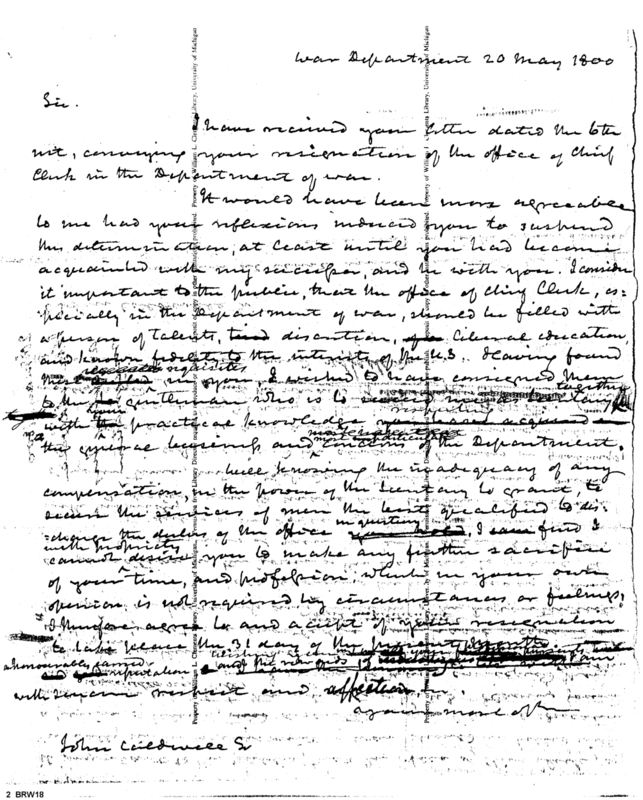 War Department 20 May 1800
Sir.
I have received your letter dated the 6th
inst, conveying your resignation of the office of Chief
Clerk in the Department of war.
It would have been more agreeable
to me had your reflexions induced you to suspend
this determination, at least until you had become
acquainted with my successor, and he with you. I consider
it important to the public, that the office of Chief Clerk, es-
pecially in the Department of war, should be filled with
a person of talents, discretion, liberal education,
and known fidelity to the interests of the U.S. Having found
requisites
these in you, I wished to have consigned them
together
to the gentleman who is to
with the practical knowledge
respecting
the general business and concerns of the Department.
Well knowing the inadequacy of any
compensation, in the power of the Secretary to grant, to
secure the services of men the best qualified to dis-
charge the duties of the office in question, I find I
with propriety
cannot desire you to make any further sacrifice
of your time, and profession, which in your own
opinion is not required by circumstances or feelings.
I therefore agree to and accept of your resignation
to take place the 31 day of the present month
a honourably earned
reputation
I am
with sincere respect and affection
John Caldwell Esqr
Property of William L. Clements Library, University of Michigan
Property of William L. Clements Library, University of Michigan
2 BRW18